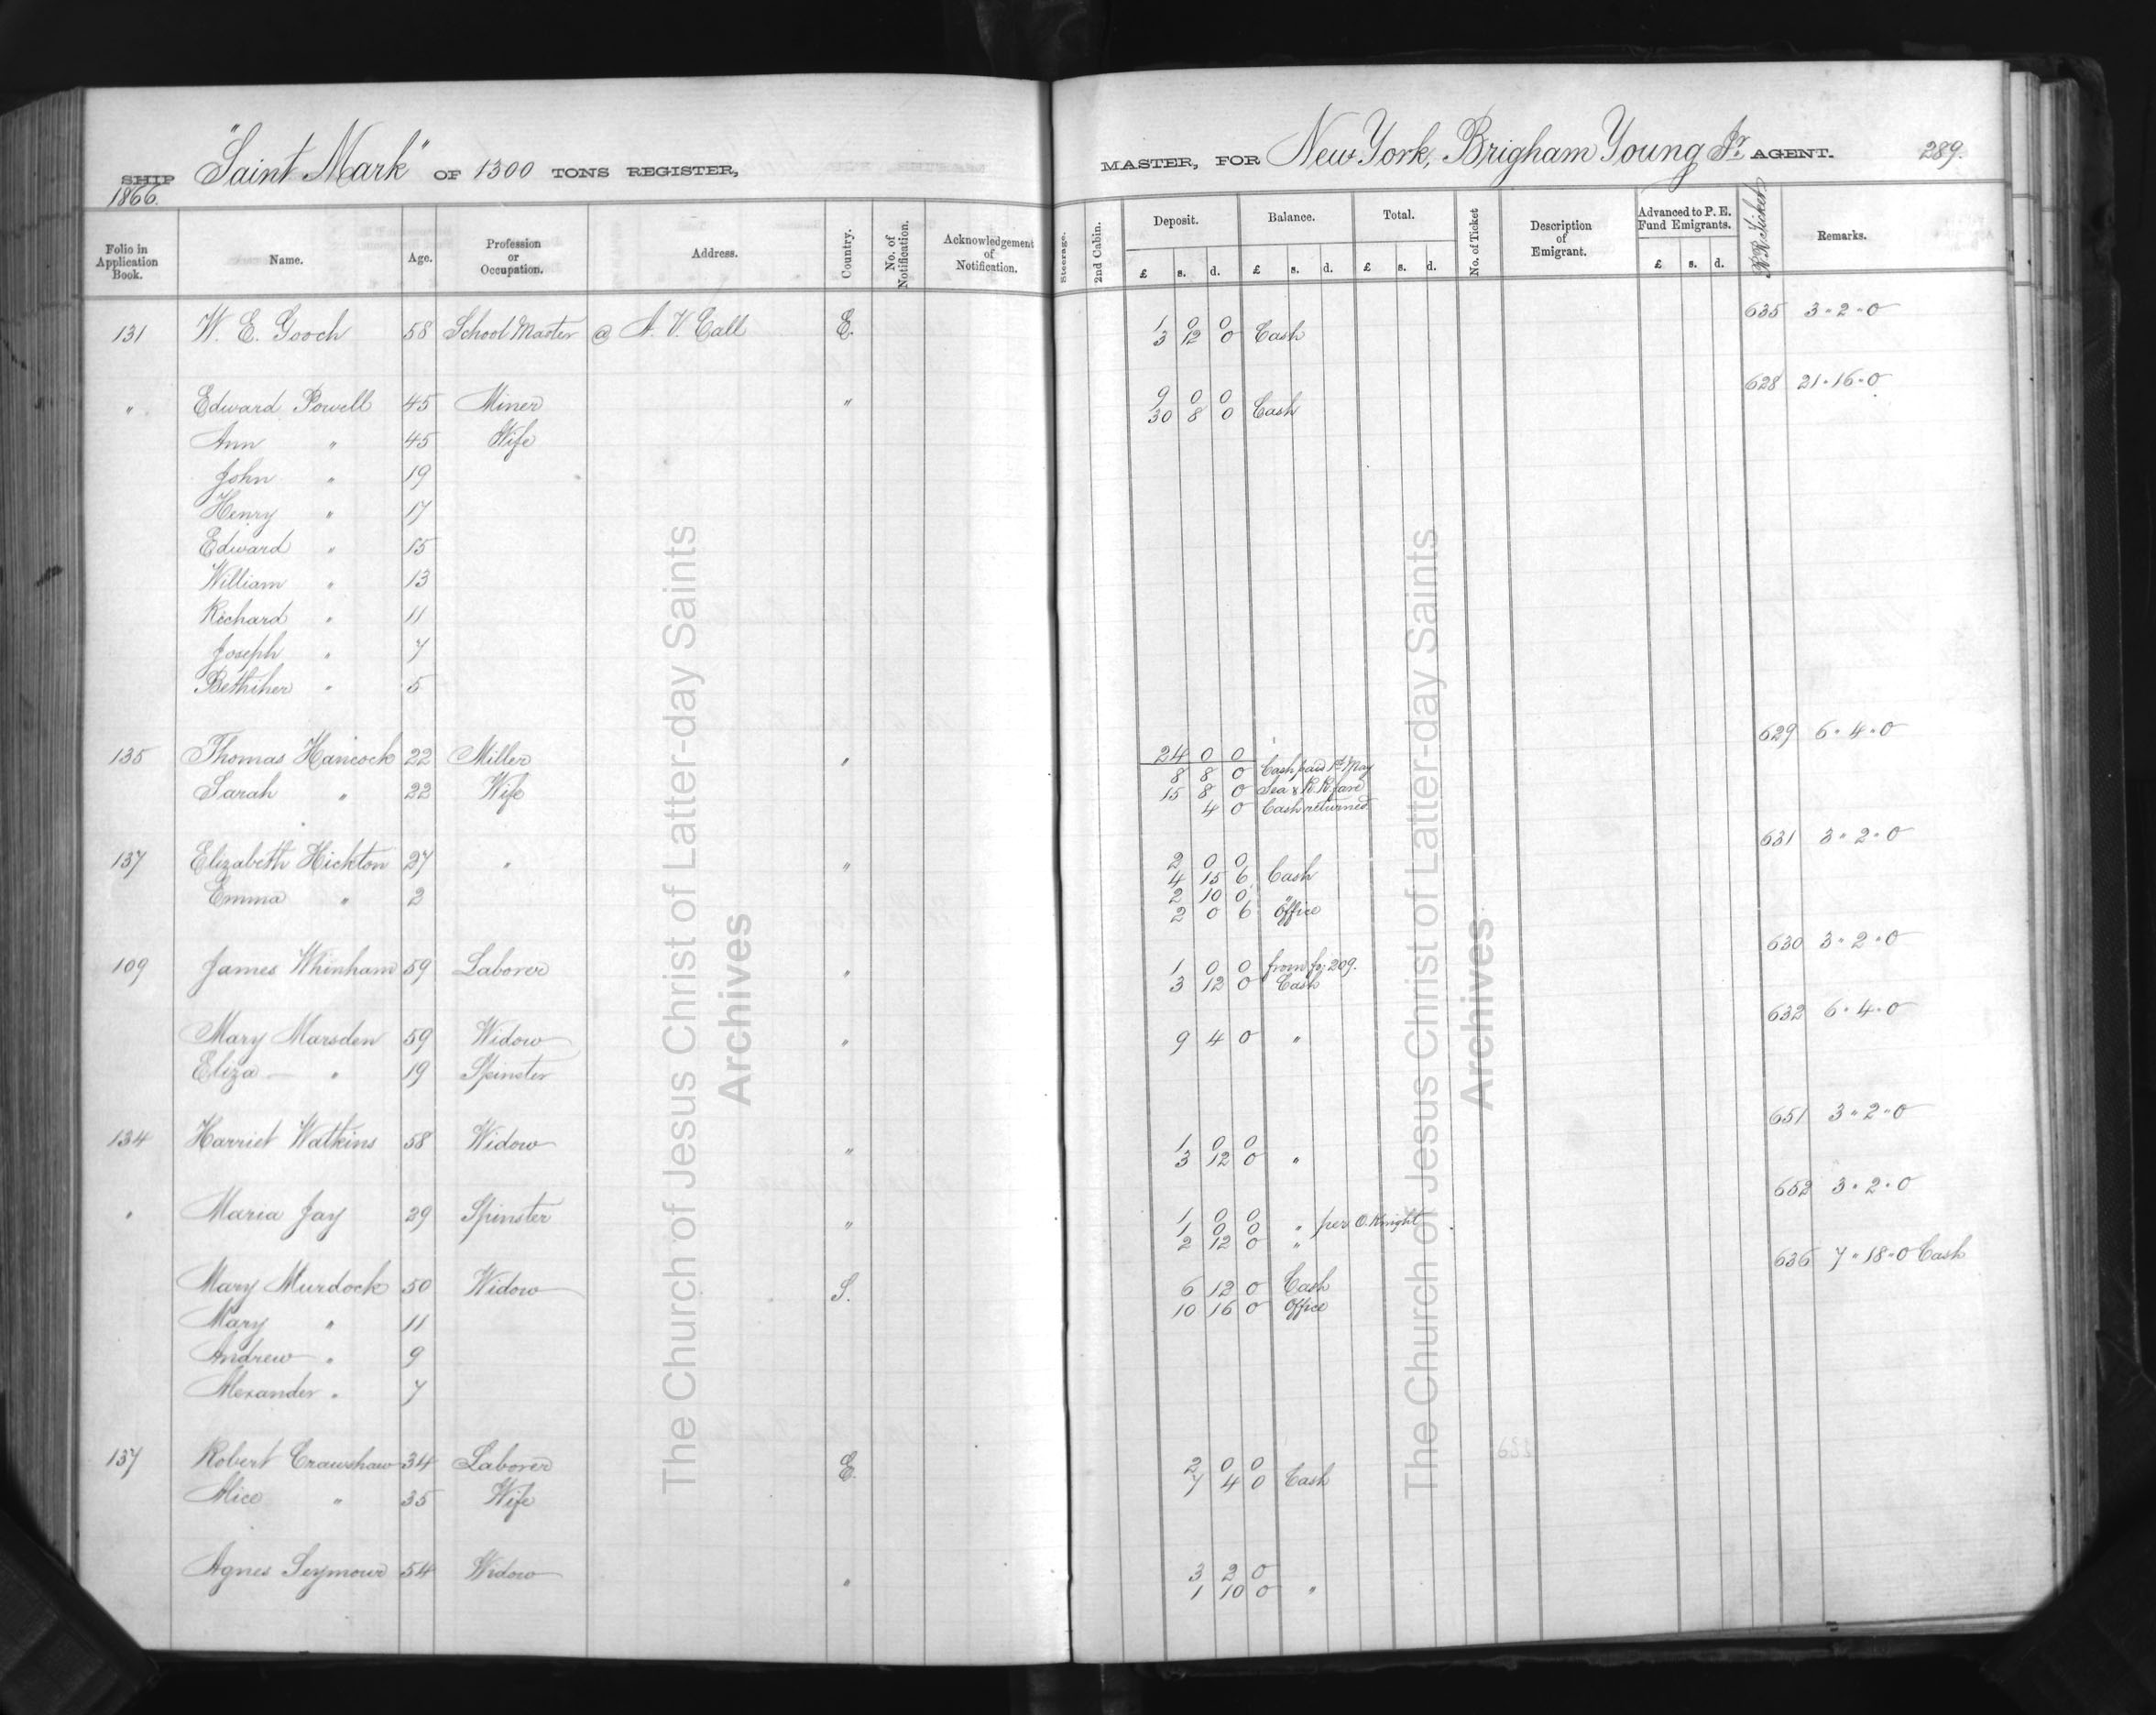 SHIP "Saint Mark" OF 1300 TONS REGISTER, MASTER, FOR New York, Brigham Young Jr. AGENT. 289.
1866.
Folio in Application Book. Name. Age. Profession or Occupation. Address. Country. No. of Notification. Acknowledgement of Notification. Steerage. 2nd Cabin. Deposit. Balance. Total. No. of Ticket Description of Emigrant. Advanced to P. E. Fund Emigrants. R R Tickets Remarks.
£ s. d. £ s. d. £ s. d. £ s. d.
635 3 " 2 " 0
131 W. E. Gooch 58 School Master @ A. V. Call E. 1 0 0
3 12 0 Cash
628 21 " 16 " 0
" Edward Powell 45 Miner " 9 0 0
30 8 0 Cash
Ann " 45 Wife
John " 19
Henry " 17
Edward " 15
William " 13
Richard " 11
Joseph " 7
Bethiher " 5
629 6 " 4 " 0
135 Thomas Hancock 22 Miller " 24 0 0
8 8 0 Cash paid 1st May
Sarah " 22 Wife 15 8 0 Sea & R. R. fare
4 0 Cash returned
631 3 " 2 " 0
137 Elizabeth Hickton 27 " " 2 0 0
4 15 6 Cash
Emma " 2 2 10 0 "
2 0 6 Office
630 3 " 2 " 0
109 James Whinham 59 Laborer " 1 0 0 from fo; 209.
3 12 0 Cash
632 6 " 4 " 0
Mary Marsden 59 Widow " 9 4 0 "
Eliza " 19 Spinster
651 3 " 2 " 0
134 Harriet Watkins 58 Widow " 1 0 0
3 12 0 "
652 3 " 2 " 0
" Maria Jay 29 Spinster " 1 0 0
1 0 0 " per O. Knight
2 12 0 "
636 7 " 18 " 0 Cash
Mary Murdock 50 Widow S. 6 12 0 Cash
10 16 0 Office
Mary " 11
Andrew " 9
Alexander " 7
137 Robert Crawshaw 34 Laborer E. 2 0 0
7 4 0 Cash
Alice " 35 Wife
Agnes Seymour 54 Widow " 3 2 0
1 10 0 "
The Church of Jesus Christ of Latter-day Saints
Archives
The Church of Jesus Christ of Latter-day Saints
Archives